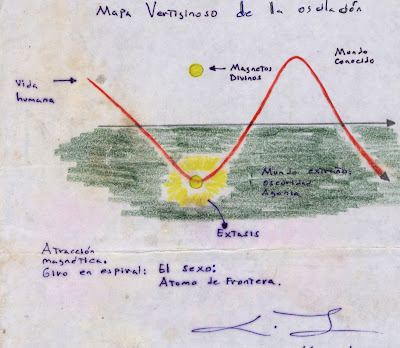 Mapa Vertiginoso de la oscilación
Mundo
Conocido
Magnetos
Divinos
Vida
humana
Mundo extraño:
oscuridad
Agonía
Extasis
Atracción
magnética.
Giro en espiral: El sexo:
Atomo de Frontera.